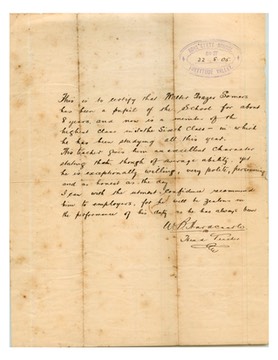 22 . 8 . 05
This is to certify that Walter Frazer Somers
has been a pupil of the School for about
8 years and now is a member of the
highest class in the Sixth Class - in which
he has been studying all this year.
His teacher gives him an excellent Character
stating that, though of average ability, yet
he is exceptionally willing, very polite, persevering
and as honest as the day.
I can with the utmost confidence recommend
him to employers, for he will be zealous in
the performance of his duty as he has always been
Head Teacher